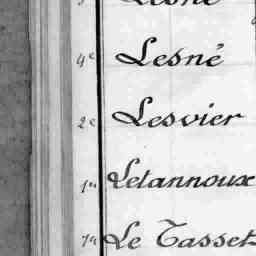 Lesné
4e Lesné
2e Lesvier
1er Letannoux
7e Le Tasset